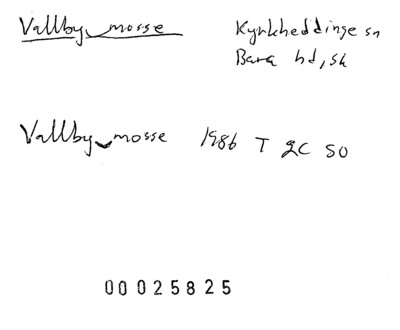 Vallby mosse
Kyrkheddinge sn
Bara hd, sk
Vallby mosse 1986 T 2C SO
00025825